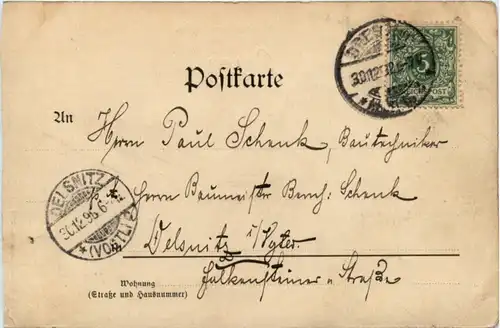 Postkarte
REICHSPOST
5
An Herrn Paul Schenk, Bautechniker
p. A. Herrn Baumeister Bernh. Schenk
Oelsnitz i/Vgtl.
Falkensteiner-Straße
Wohnung
(Straße und Hausnummer)
OELSNITZ
30.12.96.6-
(VOGTL)